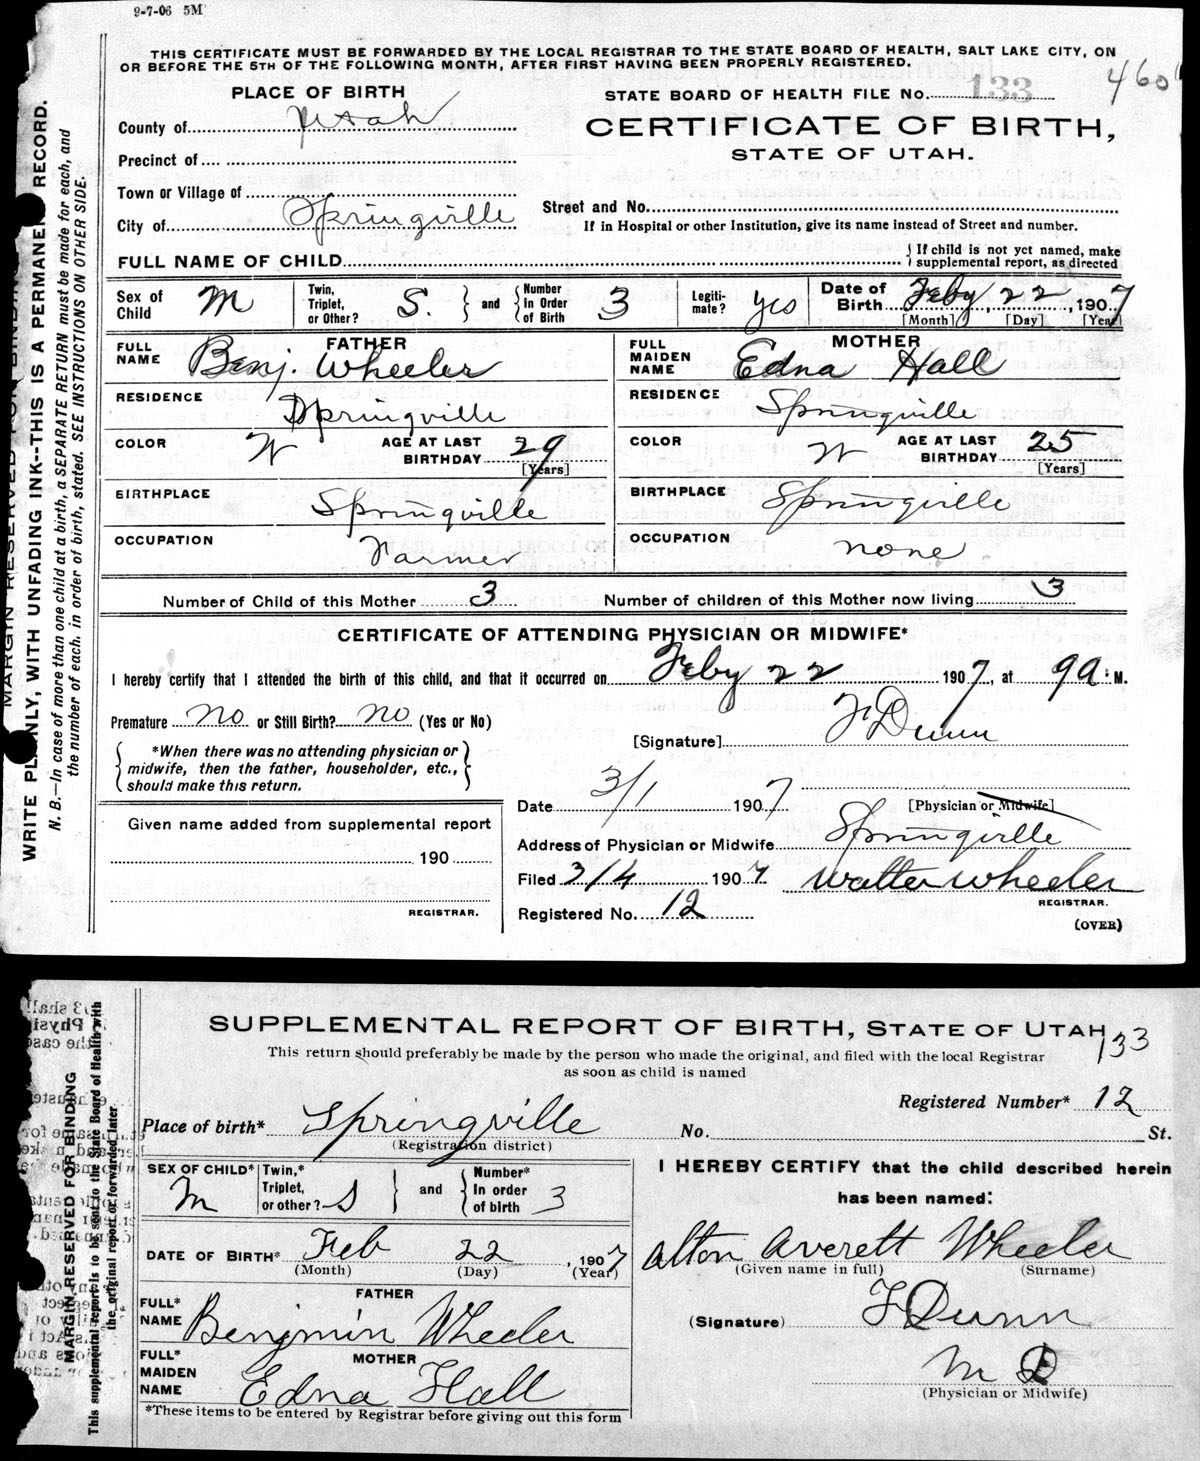 9-7-06 5M
THIS CERTIFICATE MUST BE FORWARDED BY THE LOCAL REGISTRAR TO THE STATE BOARD OF HEALTH, SALT LAKE CITY, ON
OR BEFORE THE 5TH OF THE FOLLOWING MONTH, AFTER FIRST HAVING BEEN PROPERLY REGISTERED.
PLACE OF BIRTH
STATE BOARD OF HEALTH FILE NO. 133
County of Utah
CERTIFICATE OF BIRTH,
STATE OF UTAH.
Precinct of
Town or Village of
Street and No.
City of Springville
If in Hospital or other Institution, give its name instead of Street and number.
FULL NAME OF CHILD { If child is not yet named, make supplemental report, as directed
Sex of Child M Twin, Triplet, or Other? S. } and { Number In Order of Birth 3 Legiti-mate? yes Date of Birth Feby 22, 1907
[Month] [Day] [Year]
FATHER MOTHER
FULL NAME Benj. Wheeler FULL MAIDEN NAME Edna Hall
RESIDENCE Springville RESIDENCE Springville
COLOR W AGE AT LAST BIRTHDAY 29 [Years] COLOR W AGE AT LAST BIRTHDAY 25 [Years]
BIRTHPLACE Springville BIRTHPLACE Springville
OCCUPATION Farmer OCCUPATION none
Number of Child of this Mother 3 Number of children of this Mother now living 3
CERTIFICATE OF ATTENDING PHYSICIAN OR MIDWIFE*
I hereby certify that I attended the birth of this child, and that it occurred on Feby 22 1907, at 9 a. M.
Premature no or Still Birth? no (Yes or No)
[Signature] F Dunn
{ *When there was no attending physician or midwife, then the father, householder, etc., should make this return. }
Date 3/1 1907 [Physician or Midwife]
Given name added from supplemental report
Address of Physician or Midwife Springville
190
Filed 3/4 1907 Walter Wheeler
REGISTRAR.
REGISTRAR.
Registered No. 12
(OVER)
WRITE PLAINLY, WITH UNFADING INK--THIS IS A PERMANENT RECORD.
N. B.—In case of more than one child at a birth, a SEPARATE RETURN must be made for each, and
the number of each. in order of birth, stated. SEE INSTRUCTIONS ON OTHER SIDE.
SUPPLEMENTAL REPORT OF BIRTH, STATE OF UTAH
133
This return should preferably be made by the person who made the original, and filed with the local Registrar
as soon as child is named
Registered Number* 12
Place of birth* Springville No. St.
(Registration district)
SEX OF CHILD* M Twin,* Triplet, or other? S } and { Number* In order of birth 3
I HEREBY CERTIFY that the child described herein
has been named:
DATE OF BIRTH* Feb 22, 1907
(Month) (Day) (Year)
Alton Averett Wheeler
(Given name in full) (Surname)
FATHER
FULL* NAME Benjmin Wheeler
(Signature) F Dunn
MOTHER
FULL* MAIDEN NAME Edna Hall
M D
(Physician or Midwife)
*These items to be entered by Registrar before giving out this form
MARGIN RESERVED FOR BINDING
This supplemental report is to be sent to the State Board of Health with
the original report or forwarded later